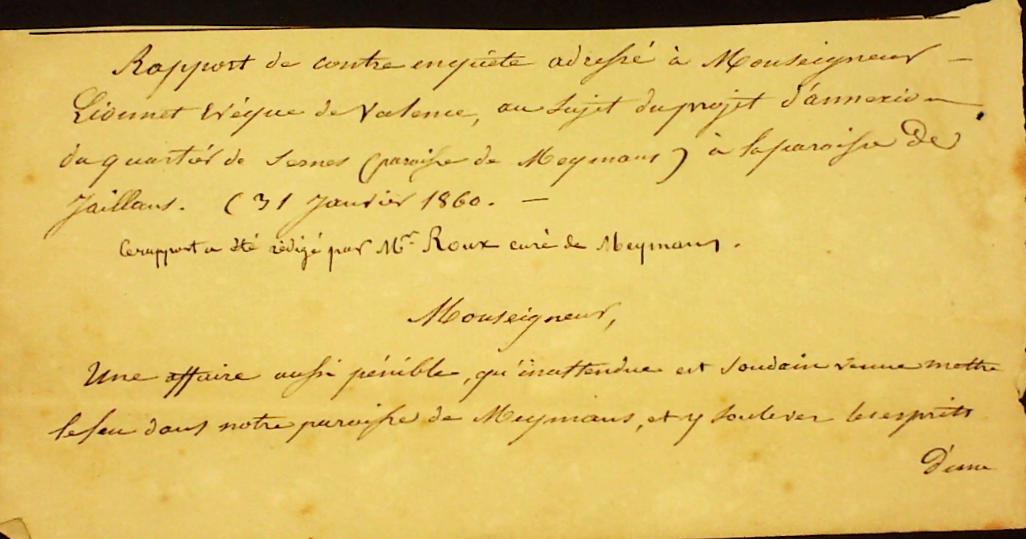 Rapport de contre enquête adressé à Monseigneur —
Lionnet Evêque de Valence, au sujet du projet d'annexion
du quartier de Sernes (paroisse de Meymans) à la paroisse De
Jaillans. (31 Janvier 1860. —
Ce rapport a été rédigé par Mr. Roux curé de Meymans.
Monseigneur,
Une affaire aussi pénible, qu'inattendue est soudain venue mettre
le feu dans notre paroisse de Meymans, et y soulever les esprits
D'une